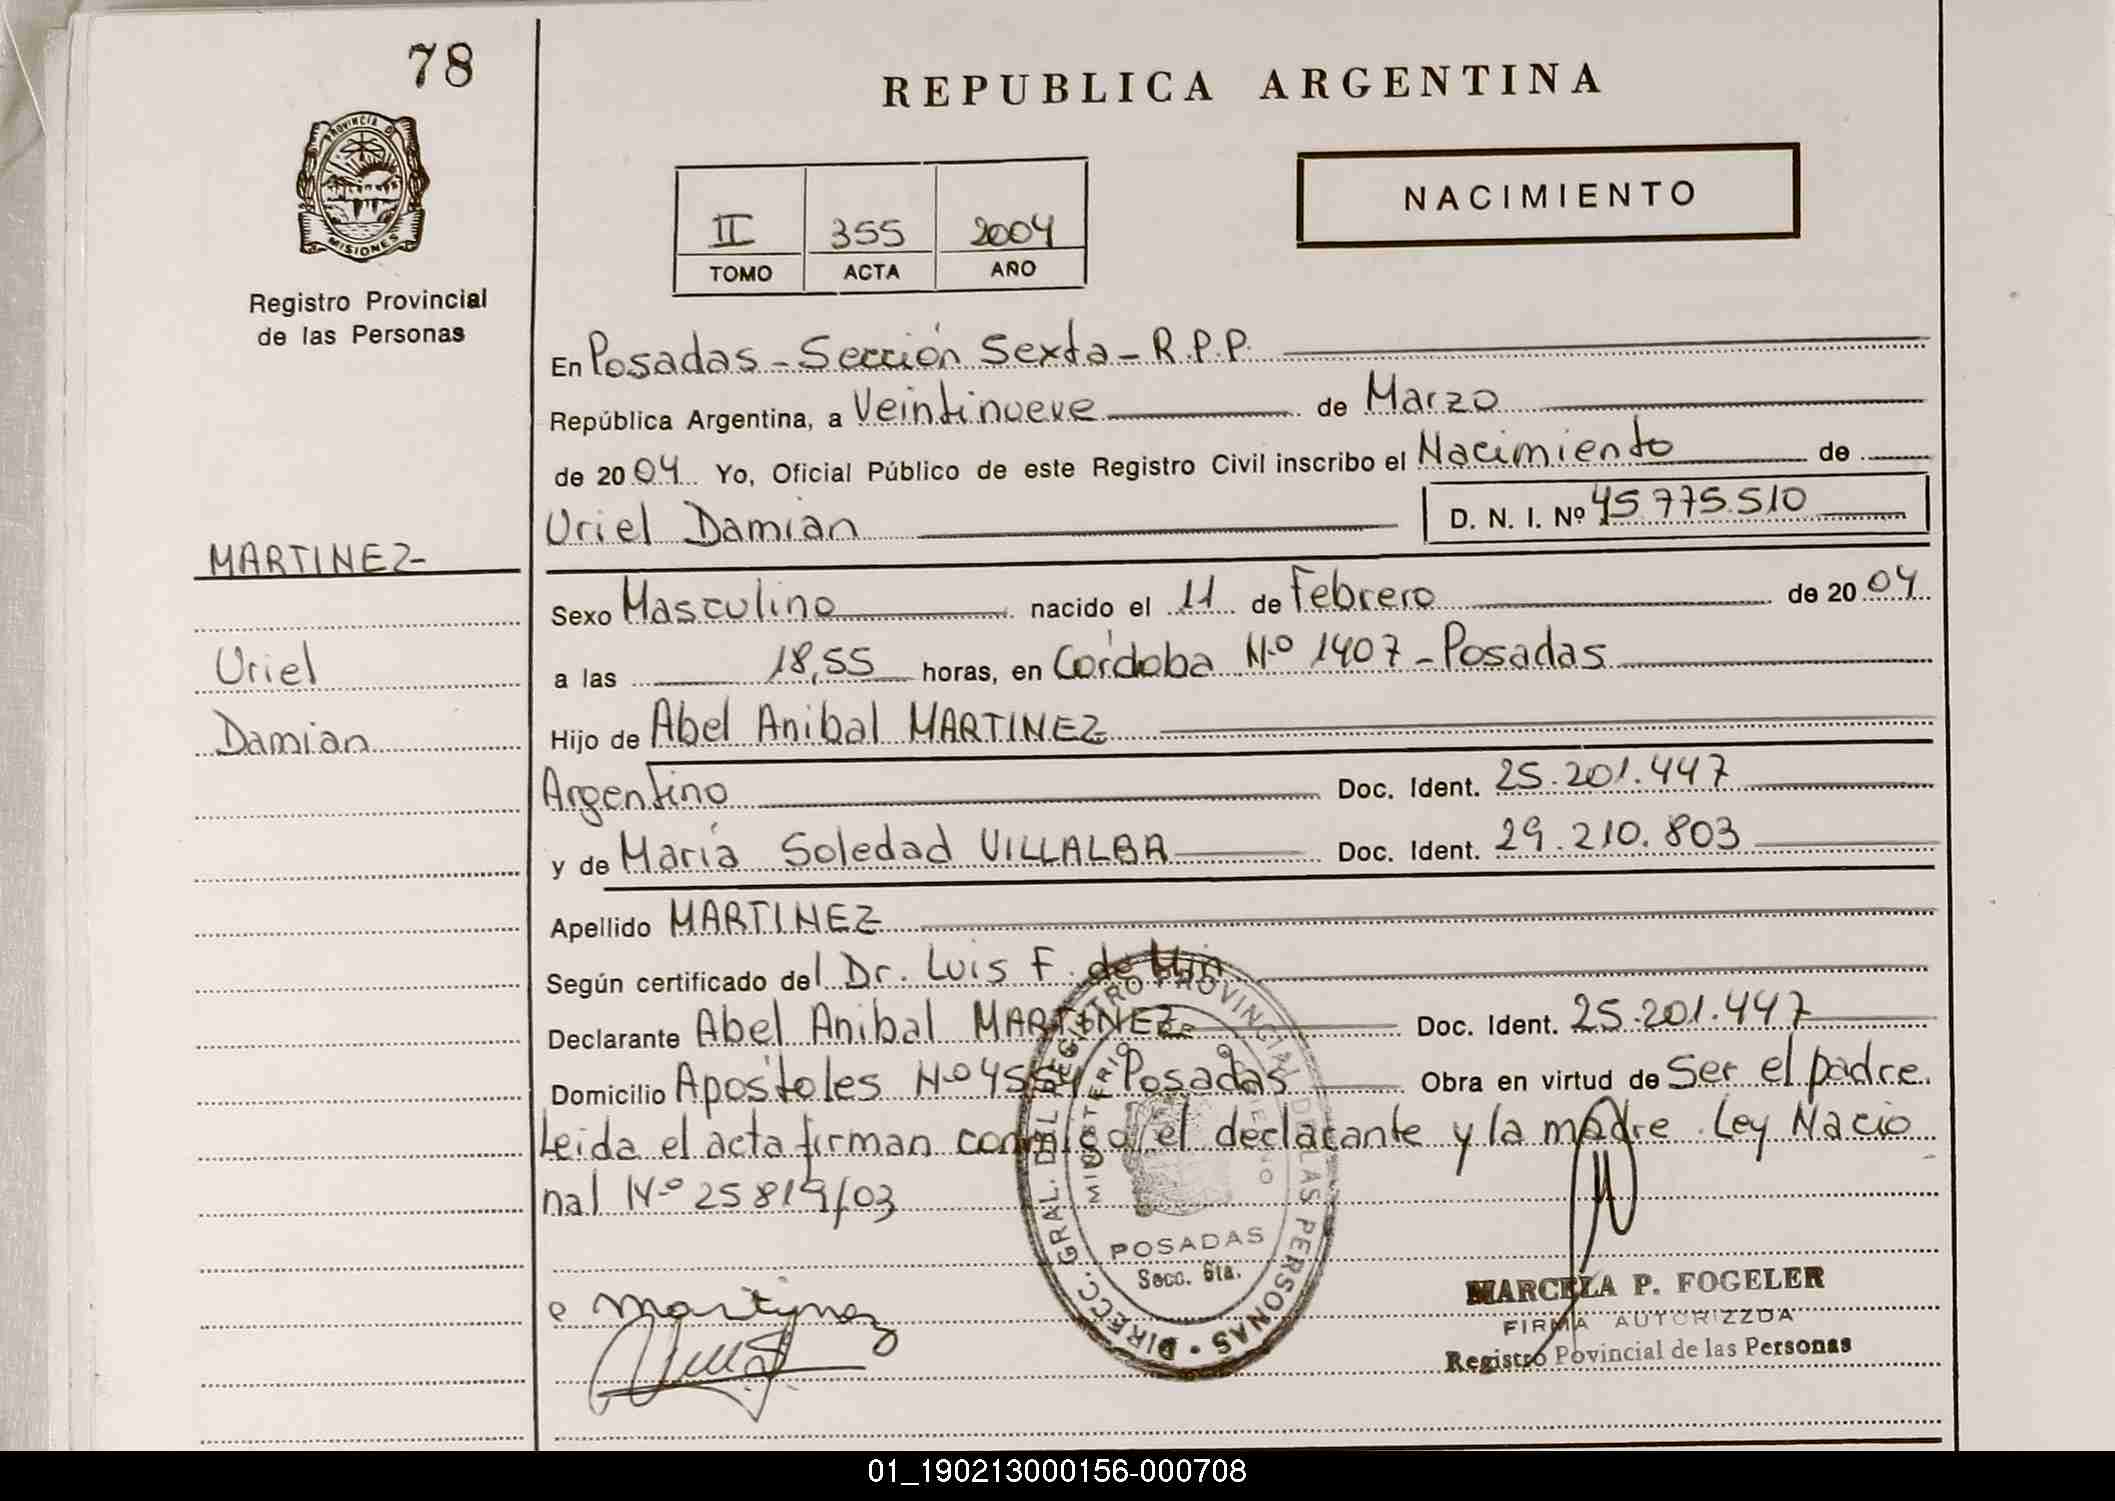 78
REPUBLICA ARGENTINA
PROVINCIA DE
MISIONES
Registro Provincial
de las Personas
NACIMIENTO
II 355 2004
TOMO ACTA AÑO
En Posadas - Sección Sexta - R.P.P.
República Argentina, a Veintinueve de Marzo
de 2004 Yo, Oficial Público de este Registro Civil inscribo el Nacimiento de
Uriel Damian D. N. I. Nº 45.775.510
MARTINEZ
Uriel
Damian
Sexo Masculino nacido el 11 de Febrero de 2004
a las 18,55 horas, en Córdoba Nº 1407 - Posadas
Hijo de Abel Anibal MARTINEZ
Argentino Doc. Ident. 25.201.447
y de María Soledad VILLALBA Doc. Ident. 29.210.803
Apellido MARTINEZ
Según certificado del Dr. Luis F. de
Declarante Abel Anibal MARTINEZ Doc. Ident. 25.201.447
Domicilio Apóstoles Nº Posadas Obra en virtud de Ser el padre.
Leida el acta firman conmigo el declarante y la madre. Ley Nacio
nal Nº 25819/03
DIRECC. GRAL. DEL REGISTRO PROVINCIAL DE LAS PERSONAS
MINISTERIO
POSADAS
Secc. 6ta.
Martinez
MARCELA P. FOGELER
FIRMA AUTORIZZDA
Registro Povincial de las Personas
01_190213000156-000708